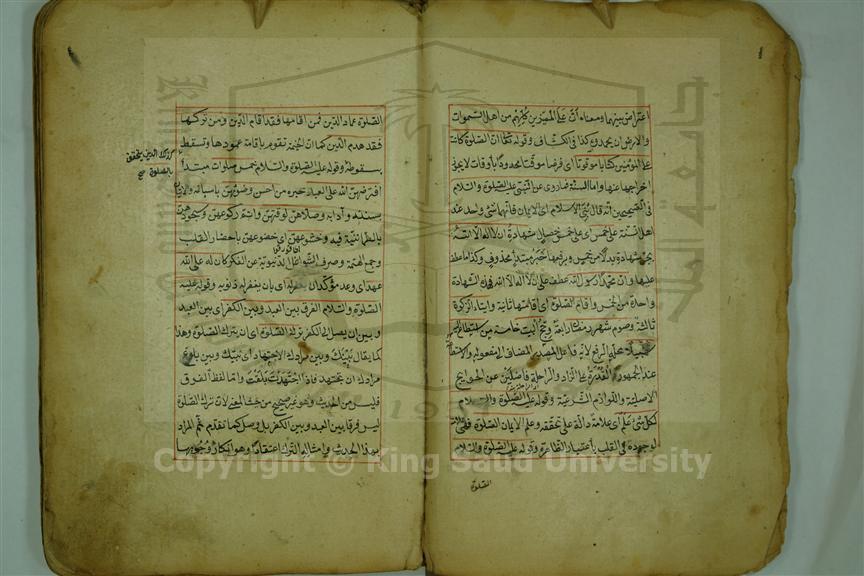 اعتراض بينهما ومعناه ان على المصدرين كلهم من اهل السموات
والارض ان يحمدوه كذا في الكشاف وقوله تعالى ان الصلوة كانت
على المؤمنين كتابا موقوتا اى فرضا موقتا محدودا باوقات لا يجوز
اخراجها عنها واما السنة فما روى عن النبي عليه الصلوة والسلام
في الصحيحين انه قال بني الاسلام اى الايمان فانهما شئ واحد عند
اهل السنة على خمس اى على خمس خصال شهادة ان لا اله الا الله
بجر شهادة بدلا من خمس وبرفعها خبر مبتدأ محذوف وكذا ما عطف
عليها وان محمدا رسول الله عطف على ان لا اله الا الله فذلك الشهادة
واحدة من الخمس واقام الصلوة اى اقامتها ثانية وايتاء الزكوة
ثالثة وصوم شهر رمضان رابعة وحج البيت خامسة من استطاع اليه
سبيلا محله الرفع لانه فاعل المصدر المضاف الى مفعوله والاستطاعة
عند الجمهور القدرة على الزاد والراحلة فاضلين عن الحوايج
الاصلية واللوازم الشرعية وقوله عليه الصلوة والسلام
لكل شئ علم اى علامة دالة على تحققه وعلم الايمان الصلوة فهى دالة
لوجوده في القلب باعتبار الظاهر وقوله عليه الصلوة والسلام
الصلوة
الصلوة عماد الدين فمن اقامها فقد اقام الدين ومن تركها
فقد هدم الدين كما ان الخيمة تقوم باقامة عمودها وتسقط
بسقوطه وقوله عليه الصلوة والسلام خمس صلوات مبتدأ
افترضهن الله على العباد خبره من احسن وضوئهن باسباغه والاتيان
بسننه وآدابه وصلاهن لوقتهن واتم ركوعهن وسجودهن
بالطمانينة فيه وخشوعهن اى خضوعهن باحضار القلب
وجمع الهمة وصرف الشواغل الدنيوية عن الفكر كان له على الله
عهد اى وعد مؤكد ان يغفر له اى بان يغفر له ذنوبه وقوله عليه
الصلوة والسلام الفرق بين العبد وبين الكفر اى بين العبد
وبين ان يصل الى الكفر ترك الصلوة اى ان يترك الصلوة وهذا
كما يقال بينك وبين مرادك الاجتهاد اى بينك وبين بلوغ
مرادك ان تجتهد فاذا اجتهدت بلغت واما لفظ الفرق
فليس من الحديث وهو غير صحيح من حيث المعنى لان ترك الصلوة
ليس فرقا بين العبد وبين الكفر بل وصل كما تقدم ثم المراد
بهذا الحديث وامثاله الترك اعتقادا وهو انكار وجوبها
Copyright © King Saud University
جامعة الملك
1957